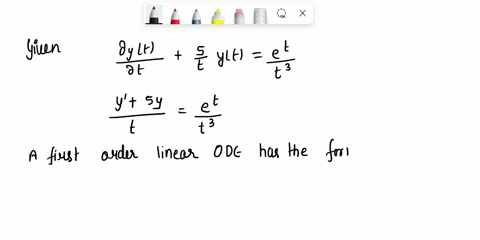 Given ∂y(t)/∂t + 5/t y(t) = e^t/t^3
y' + 5y/t = e^t/t^3
A first order linear ODE has the for